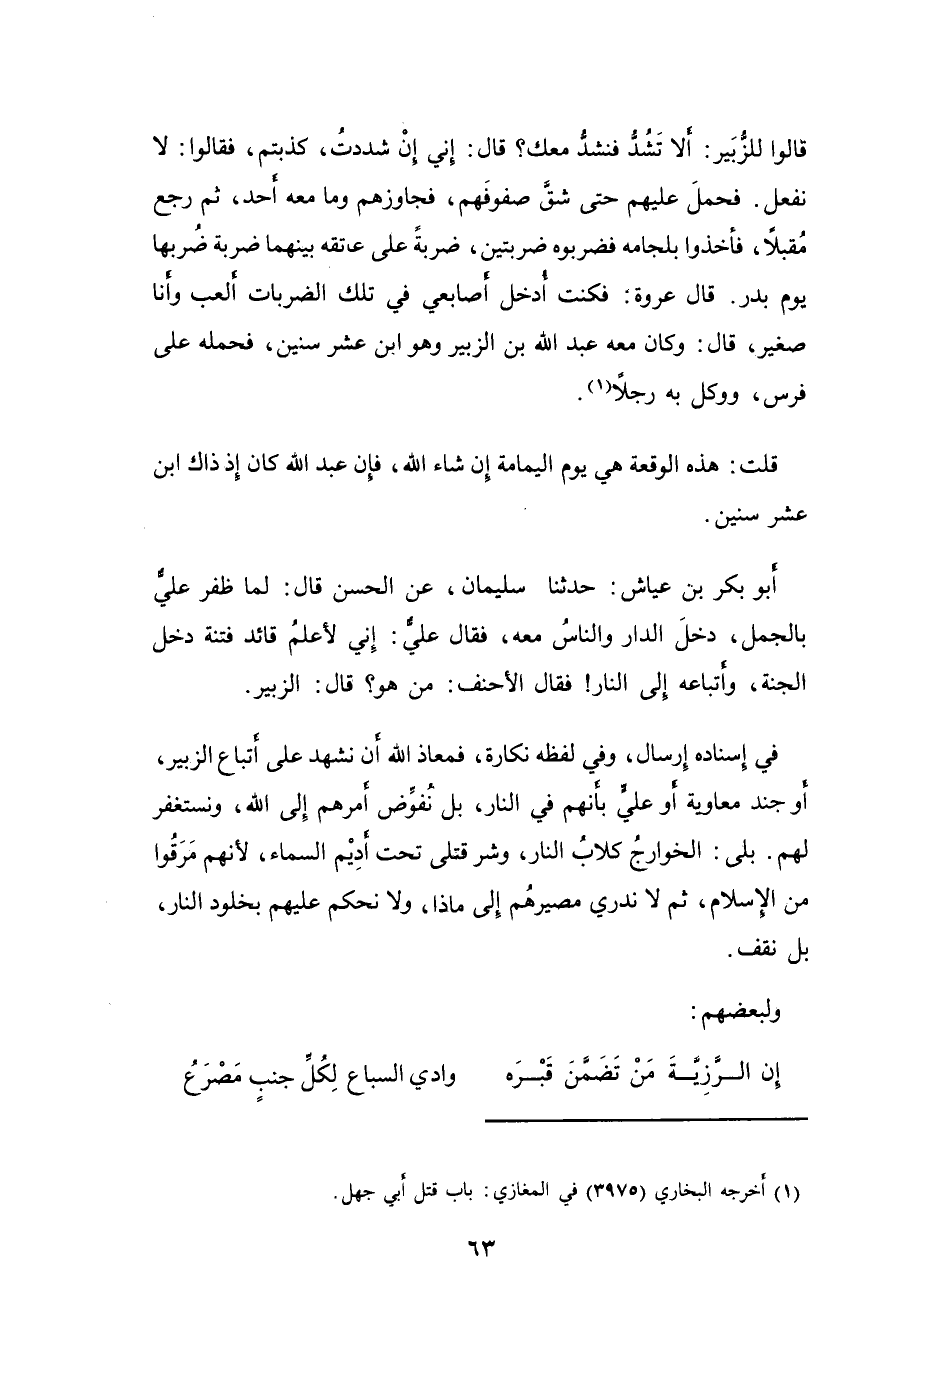 قالوا للزُّبَير: أَلا تَشُدُّ فنشدُّ معك؟ قال: إني إنْ شددتُ، كذبتم، فقالوا: لا
نفعل. فحملَ عليهم حتى شقَّ صفوفَهم، فجاوزهم وما معه أَحد، ثم رجع
مُقبلًا، فأخذوا بلجامه فضربوه ضربتين، ضربةً على عاتقه بينهما ضربة ضُربها
يوم بدر. قال عروة: فكنت أُدخل أَصابعي في تلك الضربات أَلعب وأَنا
صغير، قال: وكان معه عبد الله بن الزبير وهو ابن عشر سنين، فحمله على
فرس، ووكل به رجلًا(١).
قلت: هذه الوقعة هي يوم اليمامة إن شاء الله، فإن عبد الله كان إذ ذاك ابن
عشر سنين.
أَبو بكر بن عياش: حدثنا سليمان، عن الحسن قال: لما ظفر عليٌّ
بالجمل، دخلَ الدار والناسُ معه، فقال عليٌّ: إني لأعلمُ قائد فتنة دخل
الجنة، وأَتباعه إلى النار! فقال الأحنف: من هو؟ قال: الزبير.
في إسناده إرسال، وفي لفظه نكارة، فمعاذ الله أَن نشهد على أَتباع الزبير،
أَو جند معاوية أَو عليٍّ بأَنهم في النار، بل نُفوِّض أَمرهم إلى الله، ونستغفر
لهم. بلى: الخوارجُ كلابُ النار، وشر قتلى تحت أَدِيْم السماء، لأنهم مَرَقُوا
من الإسلام، ثم لا ندري مصيرهُم إلى ماذا، ولا نحكم عليهم بخلود النار،
بل نقف.
ولبعضهم:
إن الـرَّزِيَّـةَ مَنْ تَضَمَّنَ قَبْـرَه وادي السباع لِكُلِّ جنبٍ مَصْرَعُ
(١) أَخرجه البخاري (٣٩٧٥) في المغازي: باب قتل أَبي جهل.
٦٣